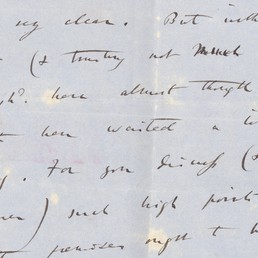 very clear. But with
(& trusting not much
? have almost thought
have waited a
. For you discuss (
) such high points
premises ought to b